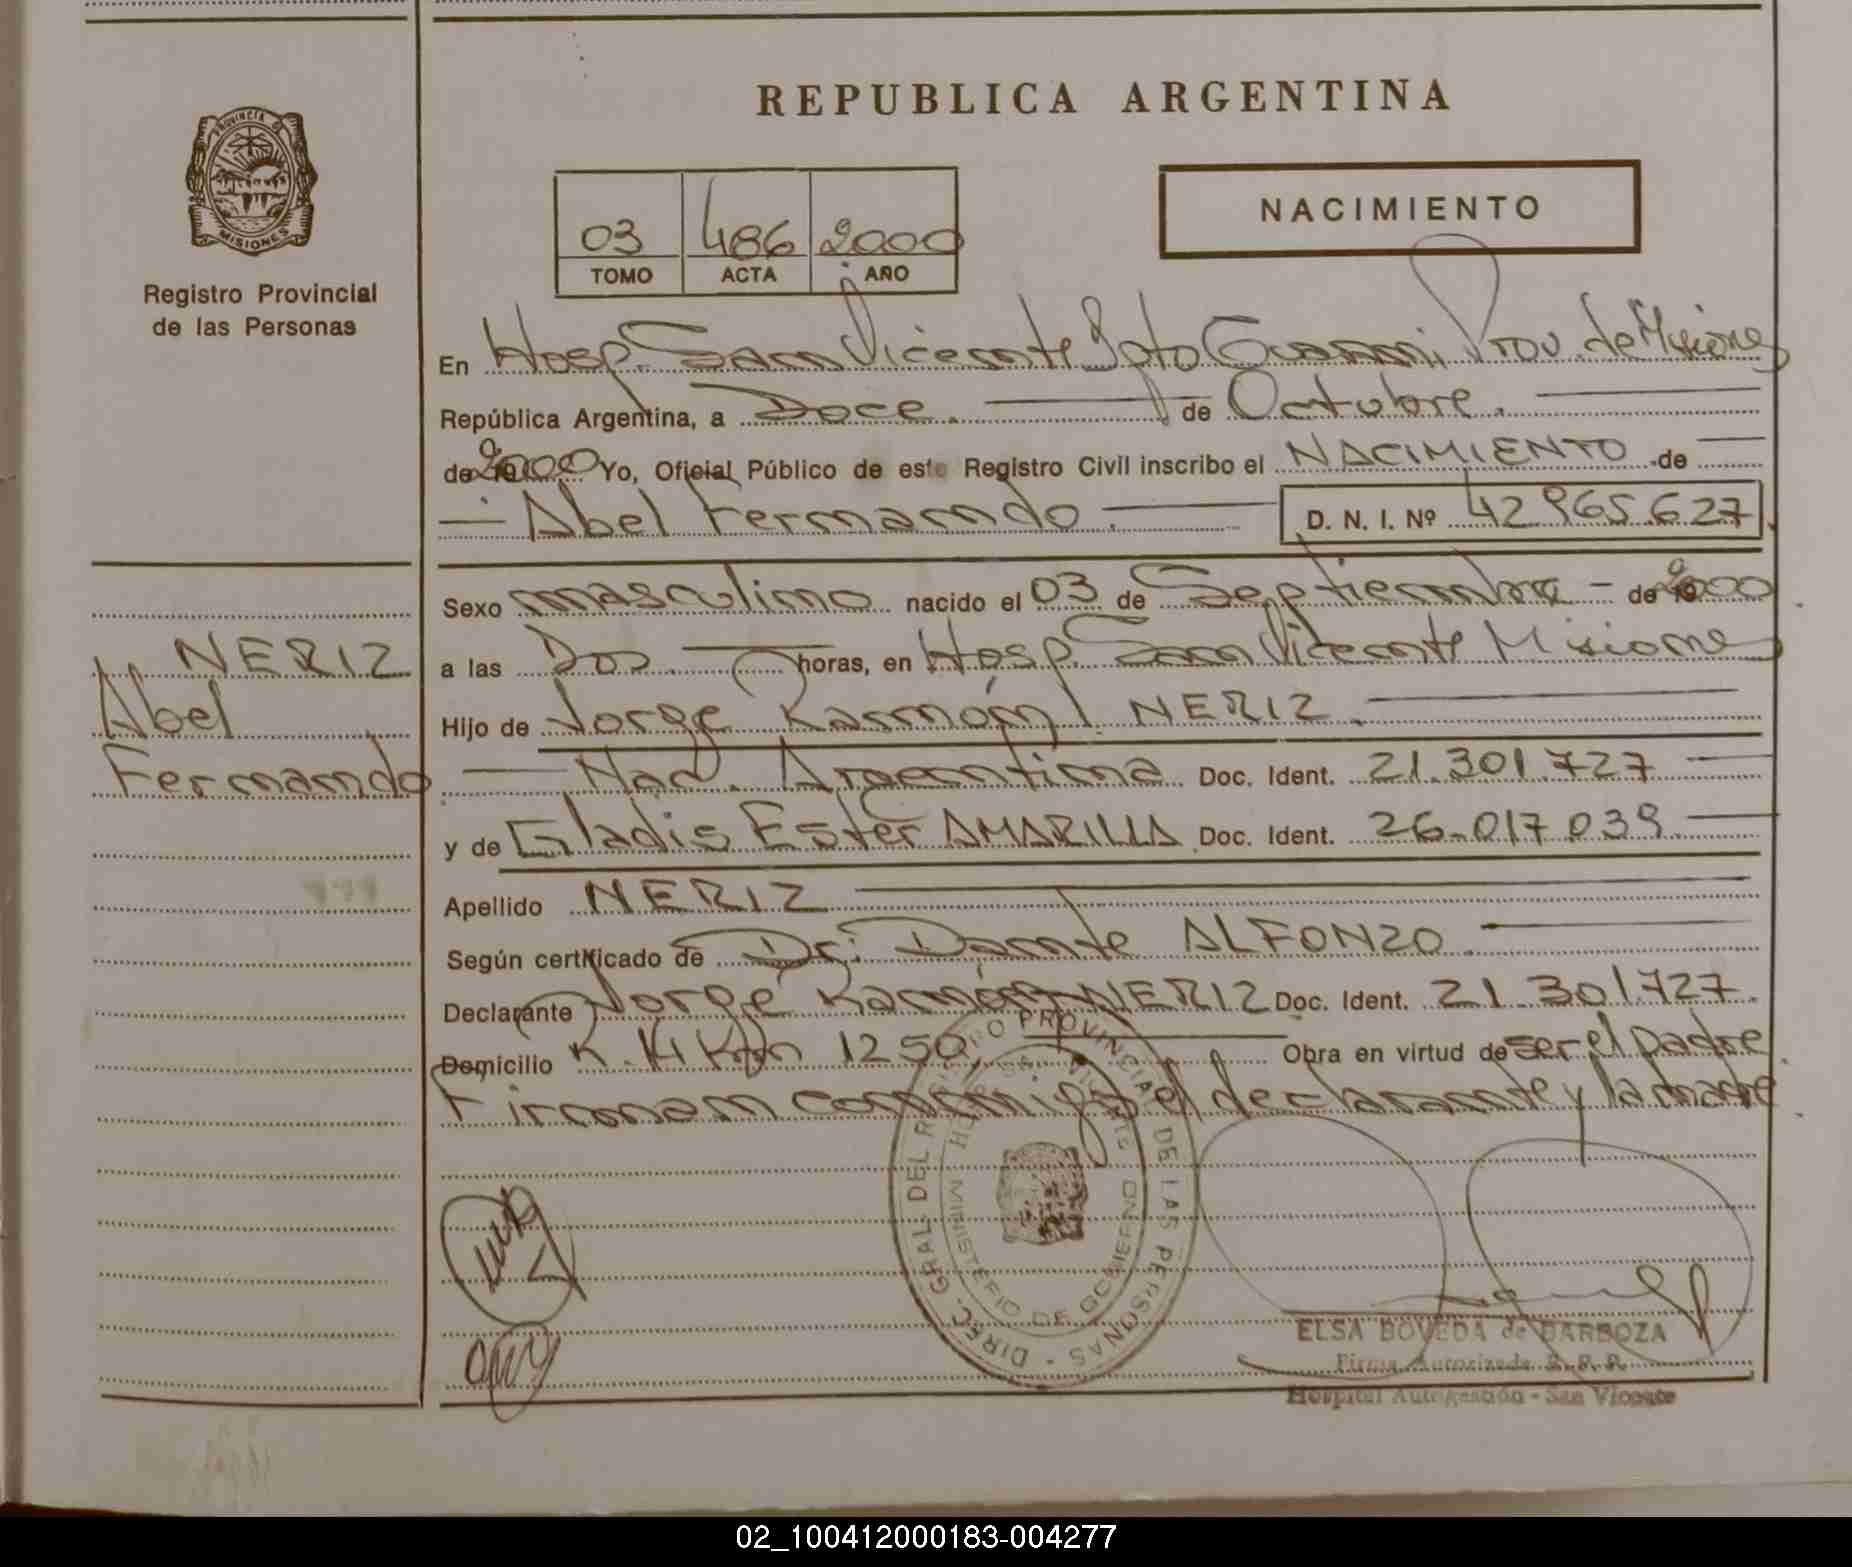 REPUBLICA ARGENTINA
PROVINCIA DE
MISIONES
Registro Provincial
de las Personas
03 486 2000
TOMO ACTA AÑO
NACIMIENTO
En Hosp. San Vicente Dpto Guarani, Prov. de Misiones
República Argentina, a Doce. de Octubre.
de 2000 Yo, Oficial Público de este Registro Civil inscribo el NACIMIENTO de
Abel Fernando. D. N. I. Nº 42 965.627
Sexo masculino nacido el 03 de Septiembre - de 2000
a las Dos horas, en Hosp. San Vicente Misiones
Hijo de Jorge Ramón NERIZ.
Nac. Argentina Doc. Ident. 21.301.727
y de Gladis Ester AMARILLA Doc. Ident. 26.017.039
Apellido NERIZ
Según certificado de Dr. Dante ALFONZO.
Declarante Jorge Ramón NERIZ Doc. Ident. 21.301727.
Domicilio R. 14 Km 1250, Obra en virtud de ser el padre
Firman conmigo el declarante y la madre.
NERIZ
Abel
Fernando
DIREC. GRAL. DEL REGISTRO PROVINCIAL DE LAS PERSONAS
MINISTERIO DE GOBIERNO
ELSA BOVEDA de BARBOZA
Firma Autorizada R. P. P.
Hospital Autogestión - San Vicente
02_100412000183-004277